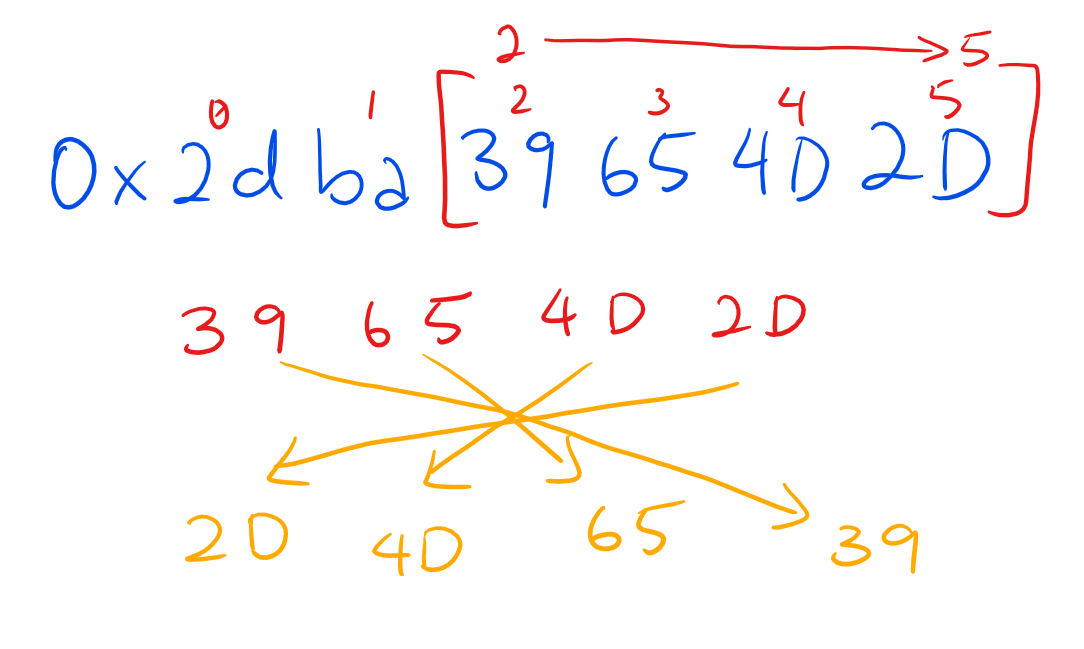 2 5
0 1 2 3 4 5
0x2dba[39 65 4D 2D]
39 65 4D 2D
2D 4D 65 39